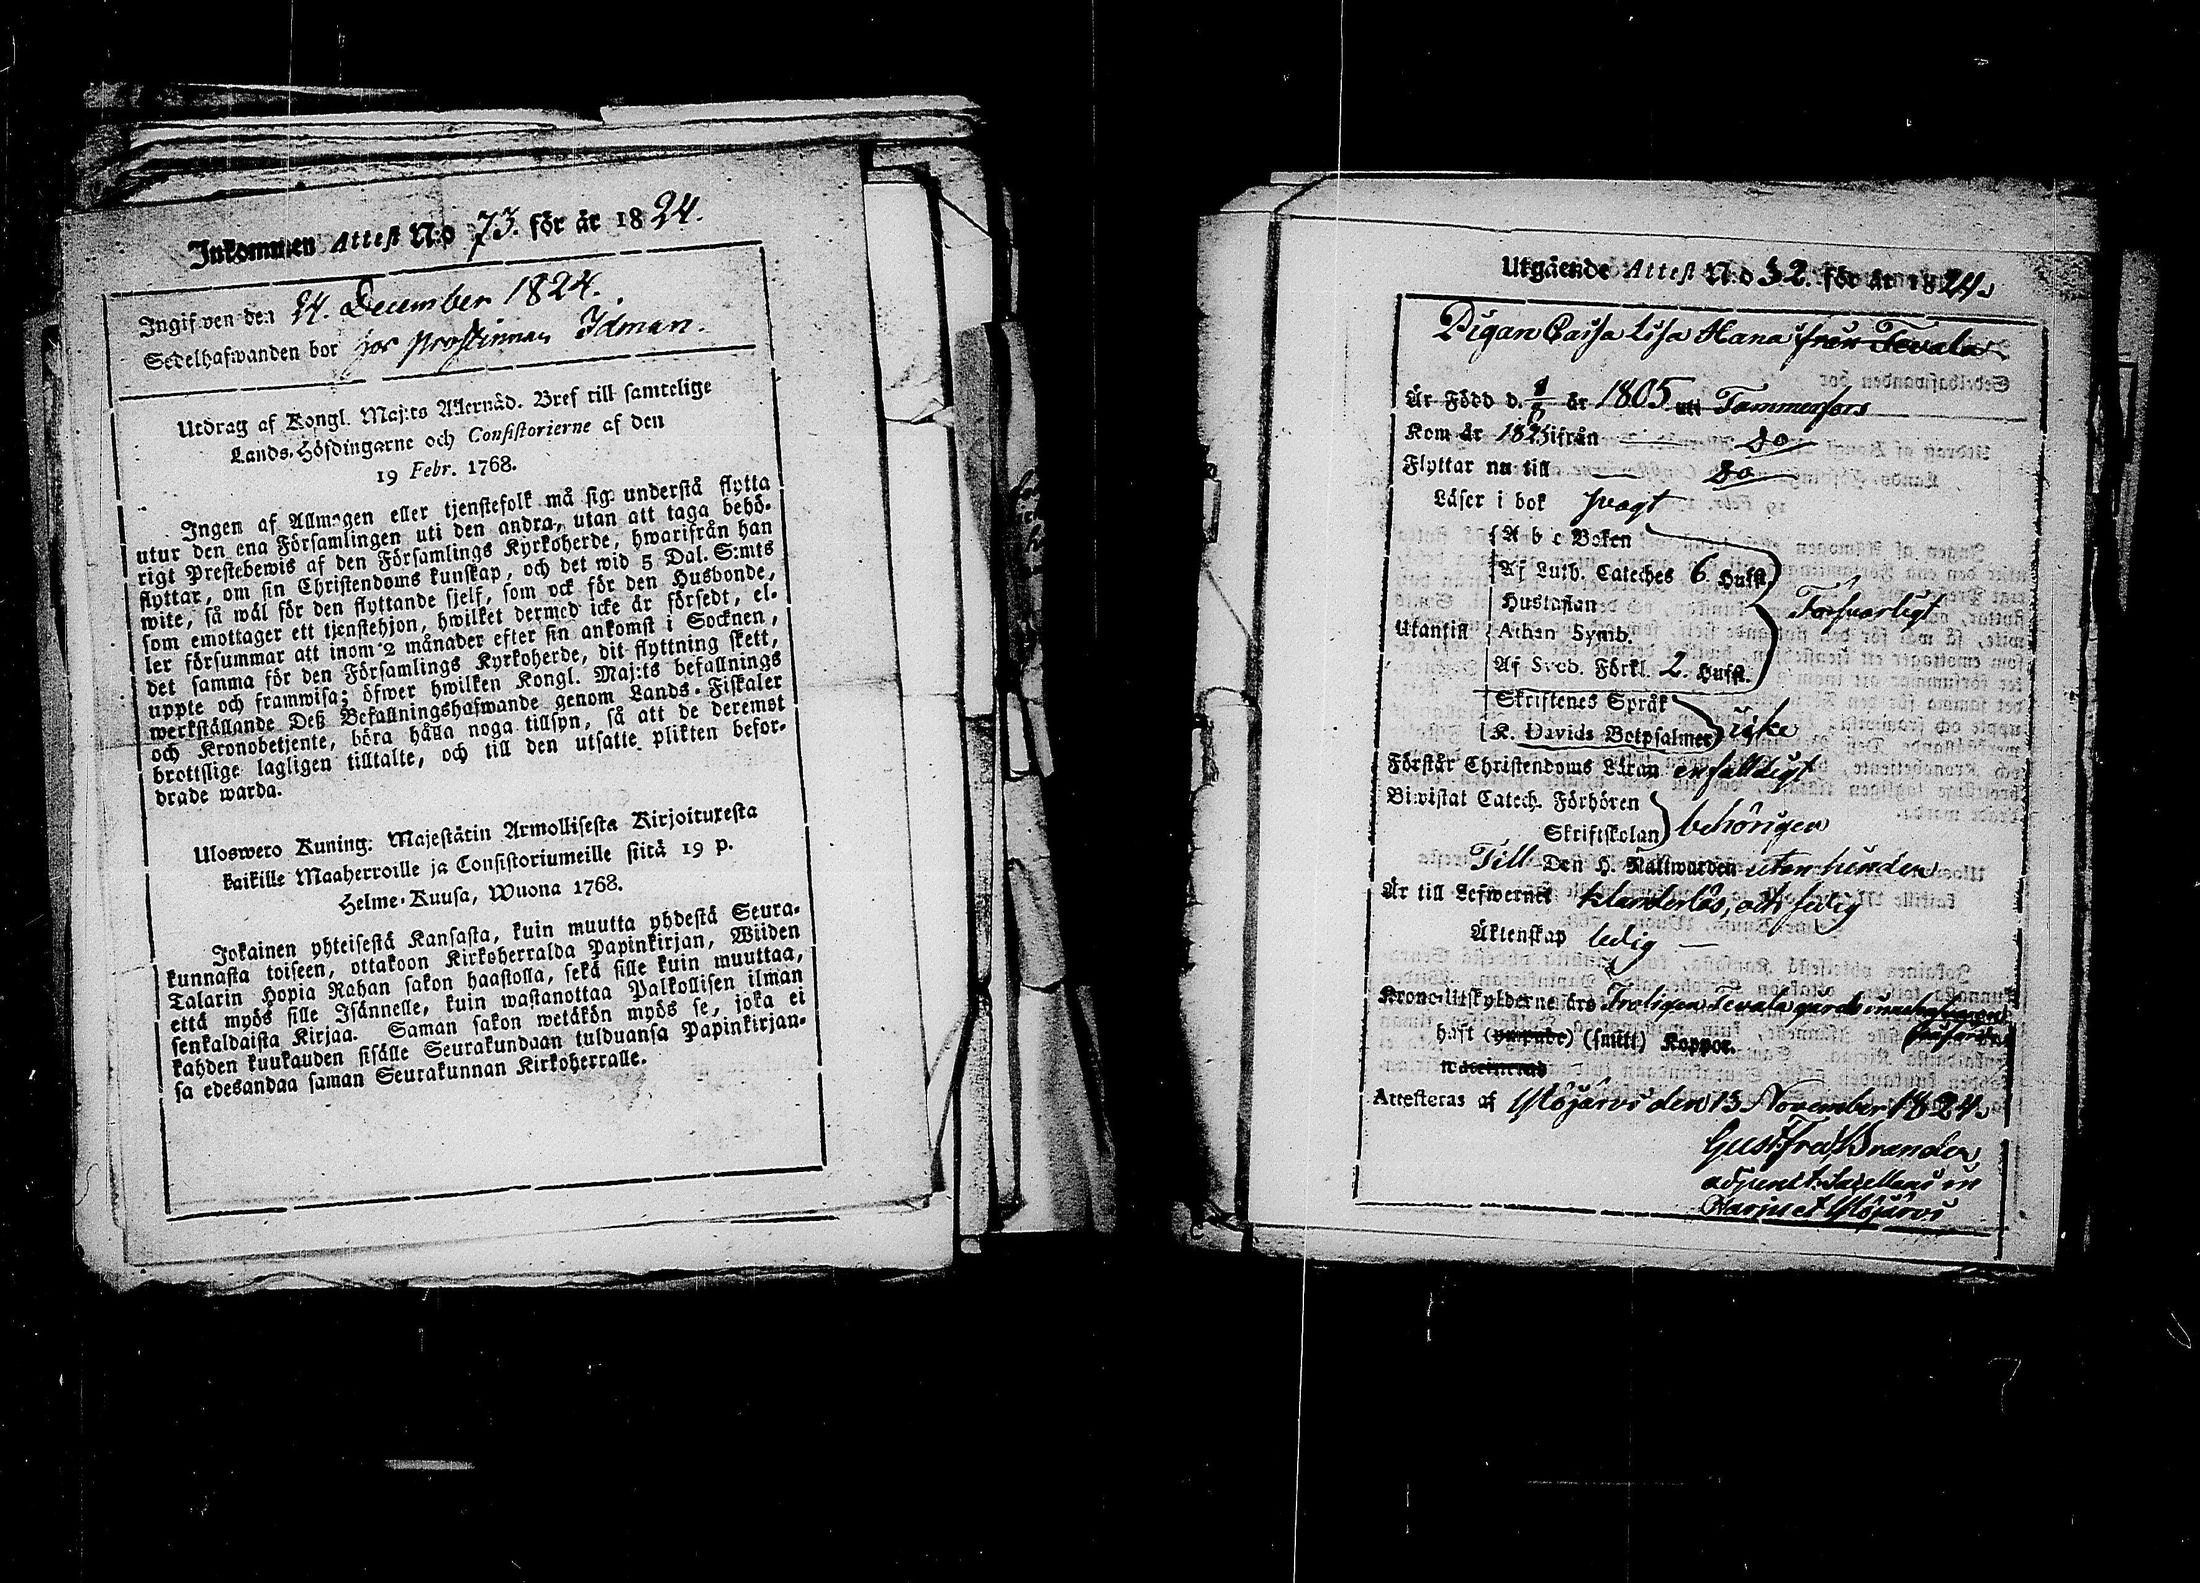 Inkommen Attest N:o 73. för år 1824.
Ingifven den 24. December 1824.
Sedelhafwanden bor hos Prostinnan Idman.
Utdrag af Kongl. Maj:ts Allernåd. Bref till samtelige
Lands-Höfdingarne och Consistorierne af den
19 Febr. 1768.
Ingen af Allmogen eller tjenstefolk må sig understå flytta
utur den ena Församlingen uti den andra, utan att taga behö-
rigt Prestebewis af den Församlings Kyrkoherde, hwarifrån han
flyttar, om sin Christendoms kunskap, och det wid 5 Dal. S:mts
wite, så wäl för den flyttande sjelf, som ock för den Husbonde,
som emottager ett tjenstehjon, hwilket dermed icke är försedt, el-
ler försummar att inom 2 månader efter sin ankomst i Socknen,
det samma för den Församlings Kyrkoherde, dit flyttning skett,
uppte och framwisa; öfwer hwilken Kongl. Maj:ts befallnings
werkställande Deß Befallningshafwande genom Lands-Fiskaler
och Kronobetjente, böra hålla noga tillsyn, så att de deremot
brottslige lagligen tilltalte, och till den utsatte plikten befor-
drade warda.
Uloswero Kuning: Majestätin Armollisesta Kirjoituxesta
kaikille Maaherroille ja Consistoriumeille siitä 19 p.
Helme-Kuusa, Wuona 1768.
Jokainen yhteisestä Kansasta, kuin muutta yhdestä Seura-
kunnasta toiseen, ottakoon Kirkoherralda Papinkirjan, Wiiden
Talarin Hopia Rahan sakon haastolla, sekä sille kuin muuttaa,
että myös sille Isännelle, kuin wastanottaa Palkollisen ilman
senkaldaista Kirjaa. Saman sakon wetäkön myös se, joka ei
kahden kuukauden sisälle Seurakundaan tulduansa Papinkirjan-
sa edesandaa saman Seurakunnan Kirkoherralle.
Utgående Attest N:o 52. för år 1824.
Pigan Caisa Lisa Hana från Tevala
Är Född d. år 1805 uti Tammerfors
Kom år 1823 ifrån do
Flyttar nu till do
Läser i bok svagt
A b c Boken
Af Luth. Cateches 6 Hufst.
Hustaflan
Försvarligt
Utantill Athan Symb.
Af Sveb. Förkl. 2. Hufst.
Skriftenes Språk
K. Davids Botpsalmer icke
Förstår Christendoms Läran enfalldigt
Biwistat Catech. Förhören
Skriftskolan behörigen
Till Den H. Nattwarden utan hinder
Är till Lefwernet klanderlös, och ledig
Äktenskap ledig
Krono-utskylderne äro Troligen Tevala gårds innehafware
påförde
haft (naturlige) (smitt) Koppor.
vaccinerad
Attesteras af Ylöjärvi den 13 November 1824.
Gust. Fred. Brander
adjunct. Sacellani in
Harju et Ylöjärvi